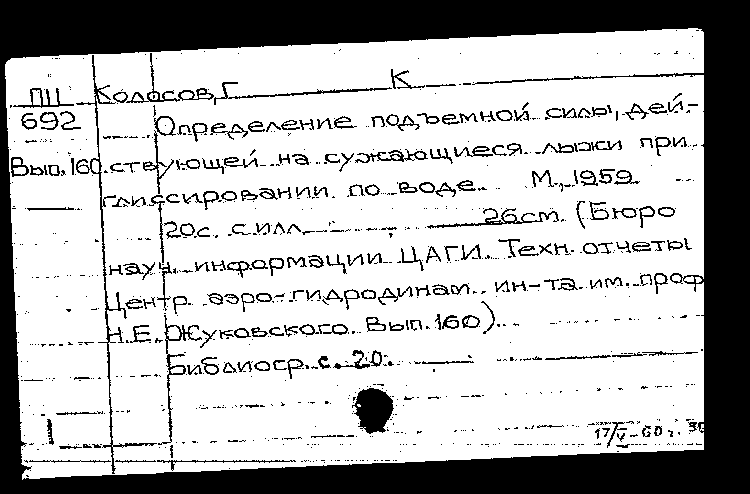 ПЦ Колосов, Г. К
692 Определение подъемной силы, дей-
Вып. 160 ствующей на сужающиеся лыжи при
глиссировании по воде. М., 1959
20с. с илл. 26см. (Бюро
науч. информации ЦАГИ. Техн. отчеты
Центр. аэро-гидродинам. ин-та им. проф
Н.Е. Жуковского. Вып. 160).
Библиогр. с. 20.
1
17/V-60 г.